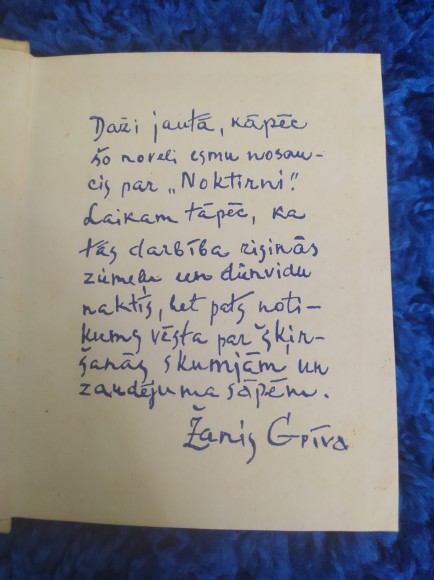 Daži jautā, kāpēc
šo noveli esmu nosau-
cis par „Noktirni”.
Laikam tāpēc, ka
tās darbība risinās
ziemeļu un dienvidu
naktīs, bet pats noti-
kums vēsta par šķir-
šanās skumjām un
zaudējuma sāpēm.
Žanis Grīva